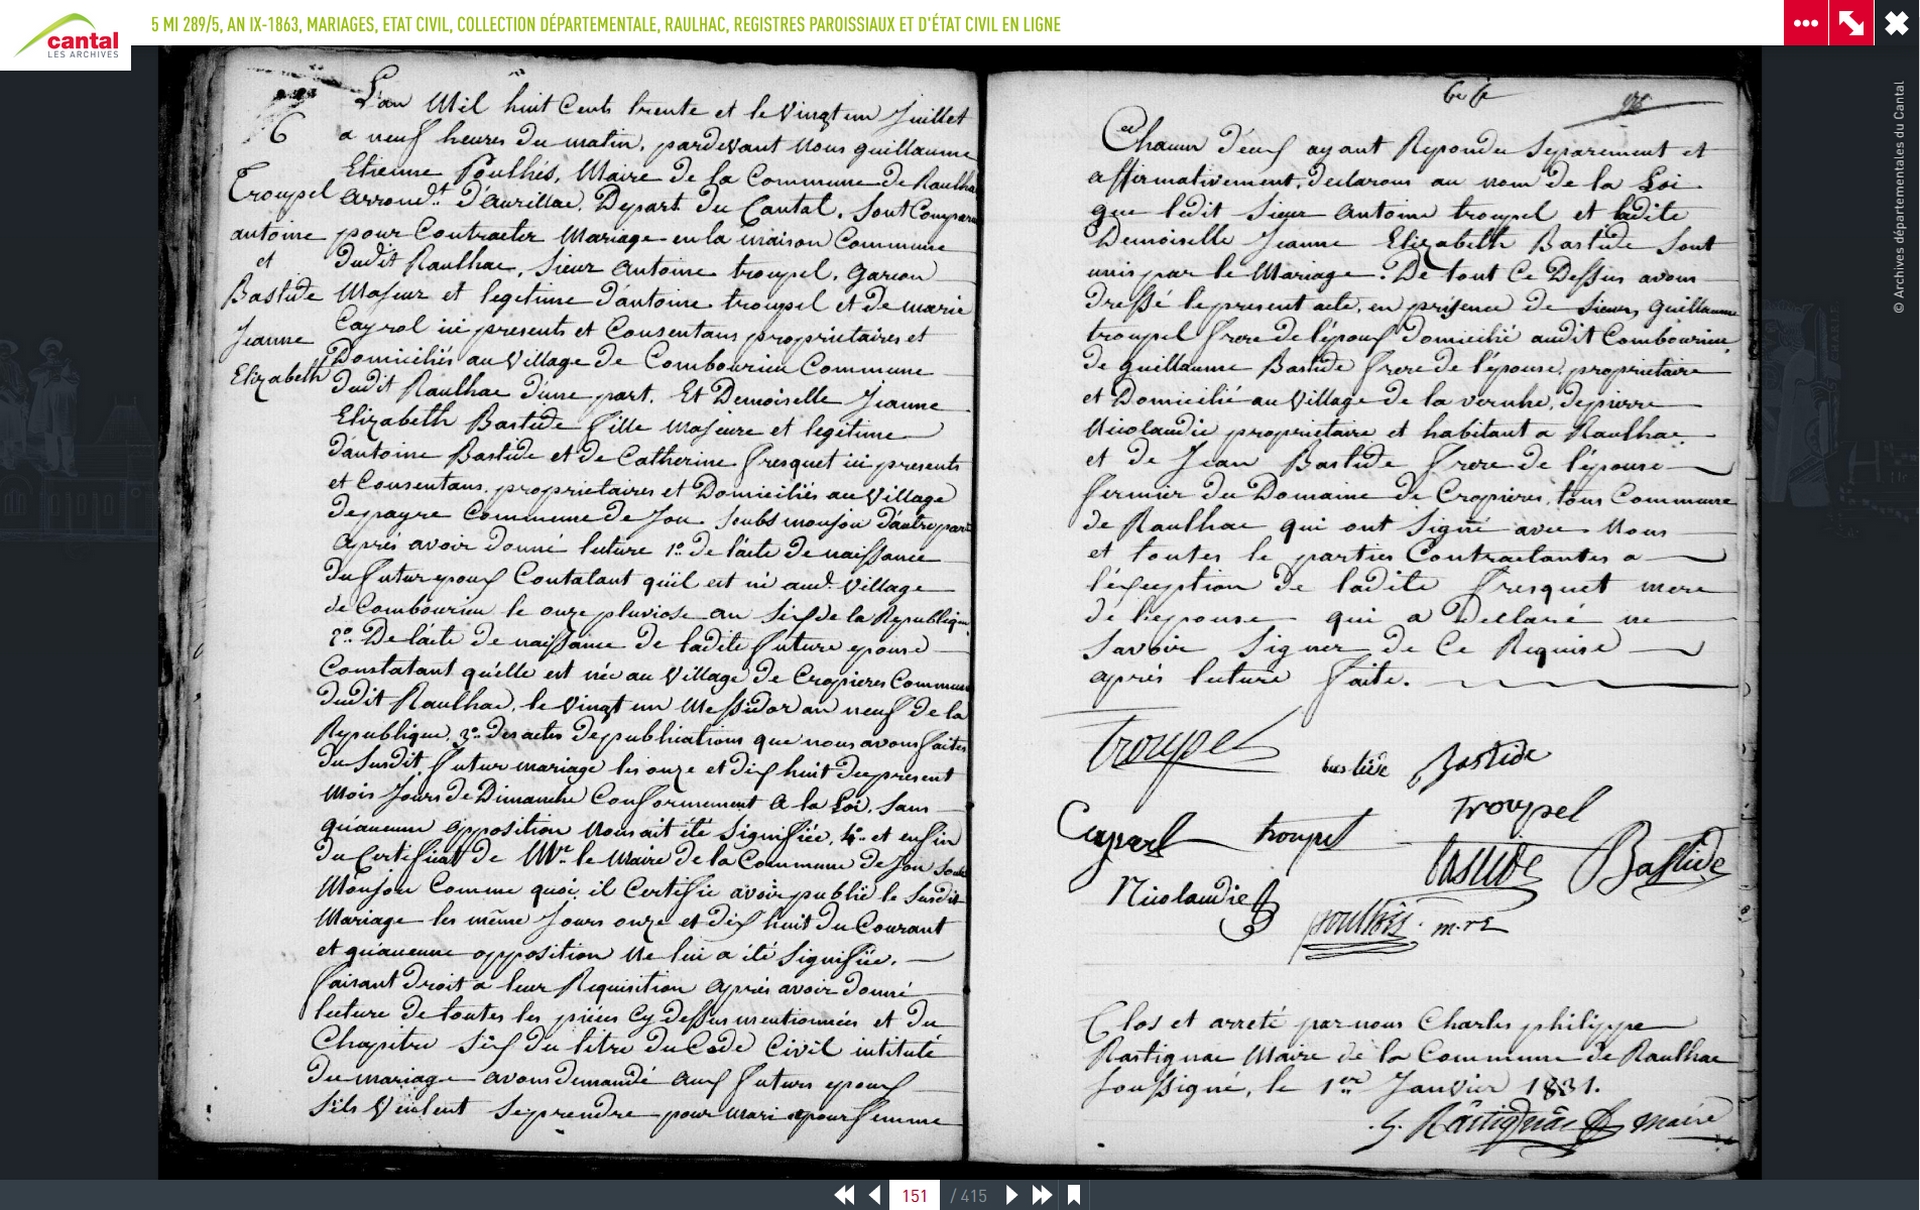 cantal
LES ARCHIVES
5 MI 289/5, AN IX-1863, MARIAGES, ETAT CIVIL, COLLECTION DÉPARTEMENTALE, RAULHAC, REGISTRES PAROISSIAUX ET D'ÉTAT CIVIL EN LIGNE
© Archives départementales du Cantal
6
Troupel
antoine
et
Bastide
Jeanne
Elizabeth
L'an Mil huit Cents trente et le Vingt un Juillet
a neuf heures du matin, pardevant Nous guillaume
Etienne Poulhés, Maire de la Commune de Raulhac
arrondt. d'aurillac, Depart. du Cantal, sont Comparu
pour Contracter Mariage en la maison Commune
dudit Raulhac, Sieur antoine troupel, garcon
Majeur et legetime d'antoine troupel et de marie
Cayrol ici presents et Consentans proprietaires et
Domiciliés au Village de Combourieu Commune
dudit Raulhac d'une part. Et Demoiselle Jeanne
Elizabeth Bastide fille majeure et legetime
d'antoine Bastide et de Catherine fresquet ici presents
et Consentans, proprietaires et Domiciliés au Village
de payre Commune de Jou Soubs monjou d'autre part
après avoir donné luture 1o. de l'acte de naissance
du futur epoux Contatant qu'il est né aud. Village
de Combourieu le onze pluviose an six de la Republique
2o. De l'acte de naissance de ladite future epouse
Constatant qu'elle est née au Village de Cropieres Commune
dudit Raulhac, le Vingt un Messidor an neuf de la
Republique, 3o. Des actes de publications que nous avons faites
du Susdit futur mariage les onze et dix huit du present
mois Jours de Dimanche Conformement a la Loi, Sans
qu'aucune opposition Nous ait été signifiée, 4o. et enfin
du Certificat de Mr. le Maire de la Commune de Jou Sous
Monjou Comme quoi il Certifie avoir publié le Susdit
Mariage les même Jours onze et dix huit du Courant
et qu'aucune opposition ne lui a été Signifiée.
faisant droit a leur Requisition après avoir donné
lecture de toutes les pièces Cy dessus mentionnées et du
Chapitre Six du titre du Code Civil intitulé
du mariage avons demandé aux futurs epoux
S'ils Veulent Se prendre pour mari et pour femme
et
Chacun d'eux ayant Repondu Separement et
affirmativement, declarons au nom de la Loi
que ledit Sieur antoine troupel et ladite
Demoiselle Jeanne Elizabeth Bastide Sont
unis par le Mariage. De tout Ce Dessus avons
dressé le present acte, en présence de Sieurs guillaume
troupel frere de l'époux domicilié audit Combourieu,
de guillaume Bastide frere de l'épouse, proprietaire
et Domicilié au Village de la vernhe, de pierre
Nicolaudie proprietaire et habitant a Raulhac
et de Jean Bastide frere de l'épouse
fermier du Domaine de Cropieres, tous Commune
de Raulhac qui ont Signé avec Nous
et toutes le parties Contractantes a
l'éxeption de ladite fresquet mere
de l'epouse qui a Declaré ne
Savoir Signer de Ce Requise
après luture faite.
Troupel
bastide Bastide
Cayrol troupel Troupel
bastide Bastide
Nicolaudie
poulhés m.re
Clos et arreté par nous Charles philippe
Rastignac Maire de la Commune de Raulhac
Soussigné, le 1er Janvier 1831.
Rastignac maire
151 / 415